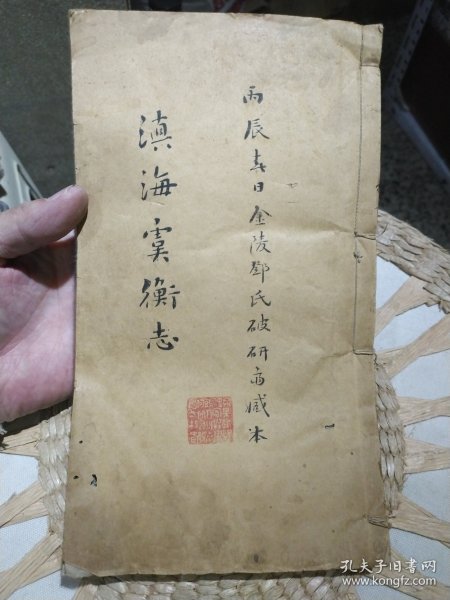 丙辰春日金陵鄧氏破研斎藏本
滇海虞衡志
孔夫子旧书网
www.kongfz.com